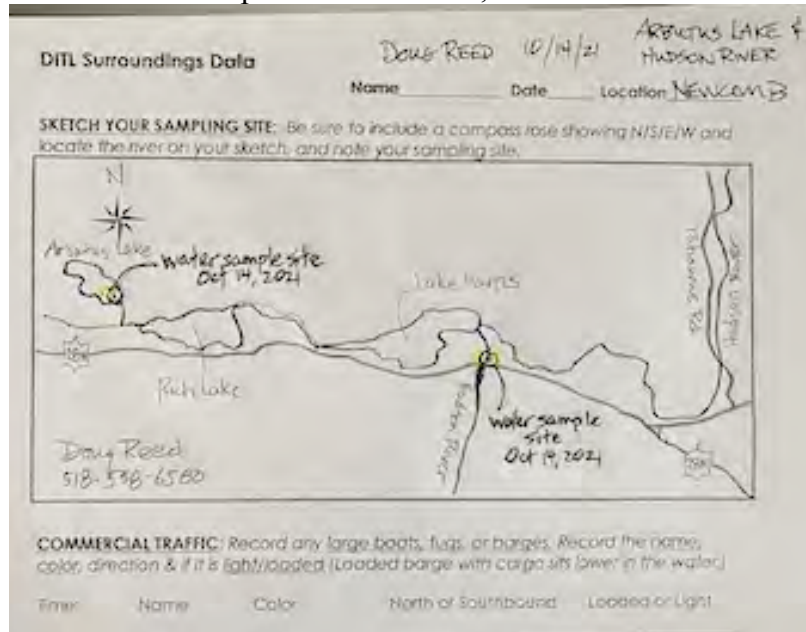 ARBUTUS LAKE &
DITL Surroundings Data DOUG REED 10/14/21 HUDSON RIVER
Name Date Location NEWCOMB
SKETCH YOUR SAMPLING SITE: Be sure to include a compass rose showing N/S/E/W and
locate the river on your sketch, and note your sampling site.
N
Arbutus Lake
water sample site
Oct 14, 2021
Lake Harris
Hudson River
Rich Lake
Hudson River
water sample
site
Oct 14, 2021
Doug Reed
COMMERCIAL TRAFFIC: Record any large boats, tugs, or barges. Record the name,
color, direction & if it is light/loaded (Loaded barge with cargo sits lower in the water)
Time Name Color North or Southbound Loaded or Light